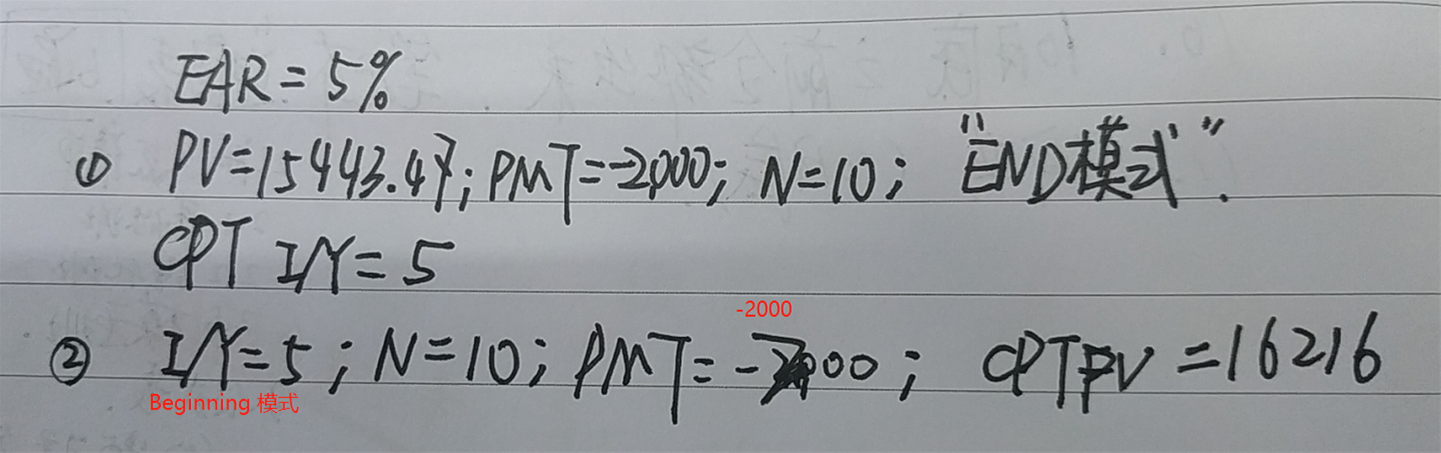 EAR = 5%
① PV=15443.47; PMT=-2000; N=10; "END模式".
CPT I/Y = 5
-2000
② I/Y=5; N=10; PMT=-2000; CPT PV =16216
Beginning 模式